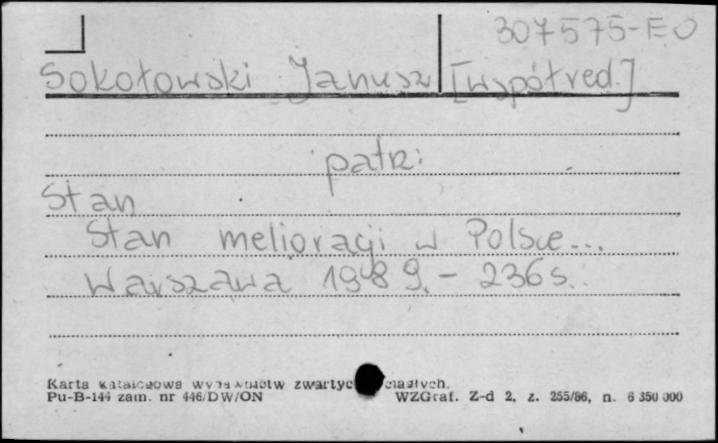 307575-EO
Sokołowski Janusz [współred.]
patrz:
Stan
Stan melioracji w Polsce...
Warszawa 1989. - 236 s.
Karta katalogowa wydawnictw zwartych ciągłych.
Pu-B-144 zam. nr 446/DW/ON WZGraf. Z-d 2, z. 255/86, n. 6 350 000